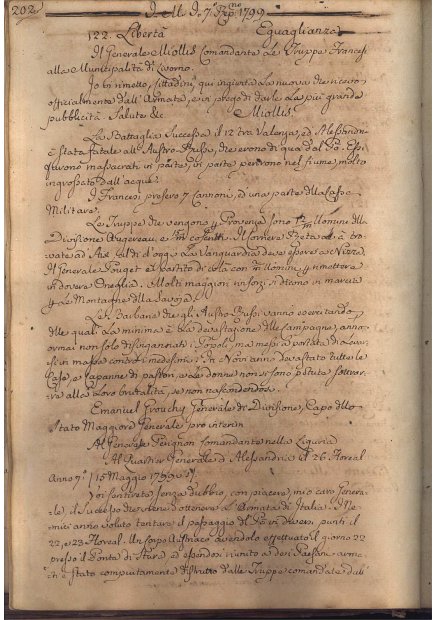 202
A. M. D. 7.° 1799
122. Libertà Eguaglianza
Il Generale Miollis Comandante Le Truppe Francesi
alla Municipalità di Livorno.
Io vi rimetto, Cittadini, qui ingiunta la nuova che ricevo
officialmente dall' Armata, e vi prego di darle la più grande
pubblicità. Salute &c. Miollis.
La Battaglia Successa il 12 tra Valenza, ed Alessandria
è stata fatale all' Austro-Russi, che erono di qua dal Pò. Essi
furono massacrati in parte, in parte perirono nel fiume molto
ingrossato dall' acque.
I Francesi presero 7 Cannoni, e una parte della Cassa
Militare.
Le Truppe che vengono di Provenza sono Uomini della
Divisione Augereau, e Coscritti. Il Corriere à tro-
vate ad Aix, sul di d'oggi La Vanguardia deve essere a Nizza.
Il Generale Pouget è partito di colà con Uomini, e rimetterà
in dovere Oneglia. Molti maggiori rinforzi si dicono in marcia
per Le Montagne della Savoja.
Le Barbarie che gli Austro Russi vanno esercitando,
delle quali La minima è la devastazione delle Campagne, anno
ormai non solo disingannati i Popoli, ma messi a portata di Levar-
si in massa contro i medesimi. In Novi anno devastato tutte le
Case, e Capanne di pastori, e le donne non si sono potute sottrar-
re alla loro brutalità, se non nascondendosi.
Emanuel Grouchy Generale di Divisione, Capo dello
Stato Maggiore Generale pro interim
Al Generale Perignon Comandante nella Liguria
Al Quartier Generale d' Alessandria il 26 Floreal
Anno 7.° (15 Maggio 1799 v.s.)
Voi sentirete senza dubbio, con piacere, mio caro Genera-
le, il Successo che viene d'ottenere L'Armata di Italia. I Ne-
mici anno voluto tentare il passaggio del Pò in diversi punti il
22, e 23 Floreal. Un corpo Austriaco avendolo effettuato il giorno 22
presso il Ponte di Stura ed essendosi riunito a dei Paesani arma-
ti è stato compiutamente distrutto dalle Truppe comandate dall'